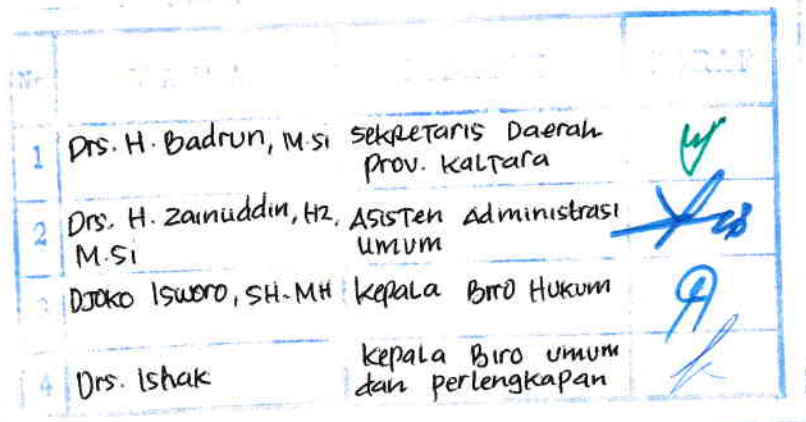 1 Drs. H. Badrun, M.Si Sekretaris Daerah
Prov. Kaltara
2 Drs. H. Zainuddin, HZ, Asisten Administrasi
M.Si Umum
3 Djoko Isworo, SH-MH Kepala Biro Hukum
4 Drs. Ishak Kepala Biro Umum
dan Perlengkapan